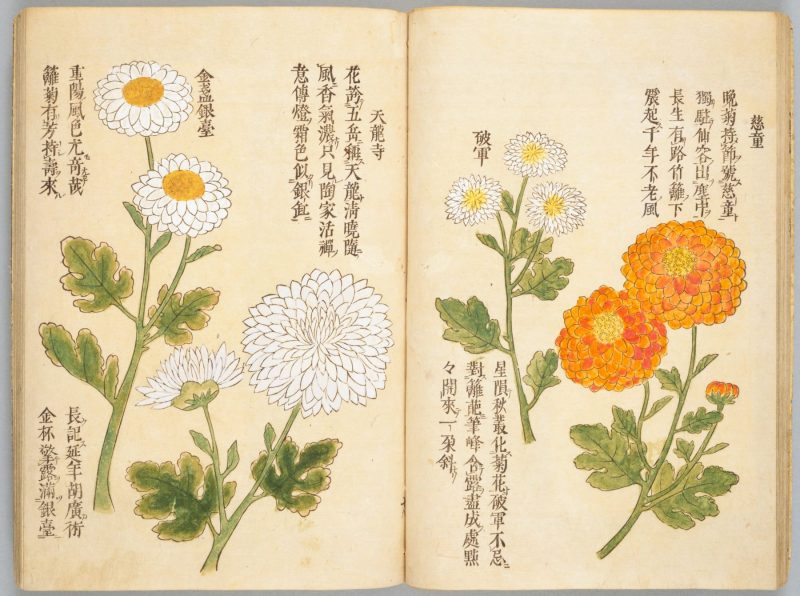 慈童
晩菊持節號慈童
獨駐仙容出塵中
長生有路竹籬下
起千年不老風
破軍
星隕秋叢化菊花破軍不忌
對籬葩筆峰含露盡成處點
々開來一朶斜
天龍寺
花誇五岳 天龍清曉隨
風香氣濃只見陶家活禪
意傳燈霜色似銀
金盞銀臺
重陽風色尤奇哉
籬菊有芳持壽來
長記延年胡廣術
金杯擎露滿銀臺